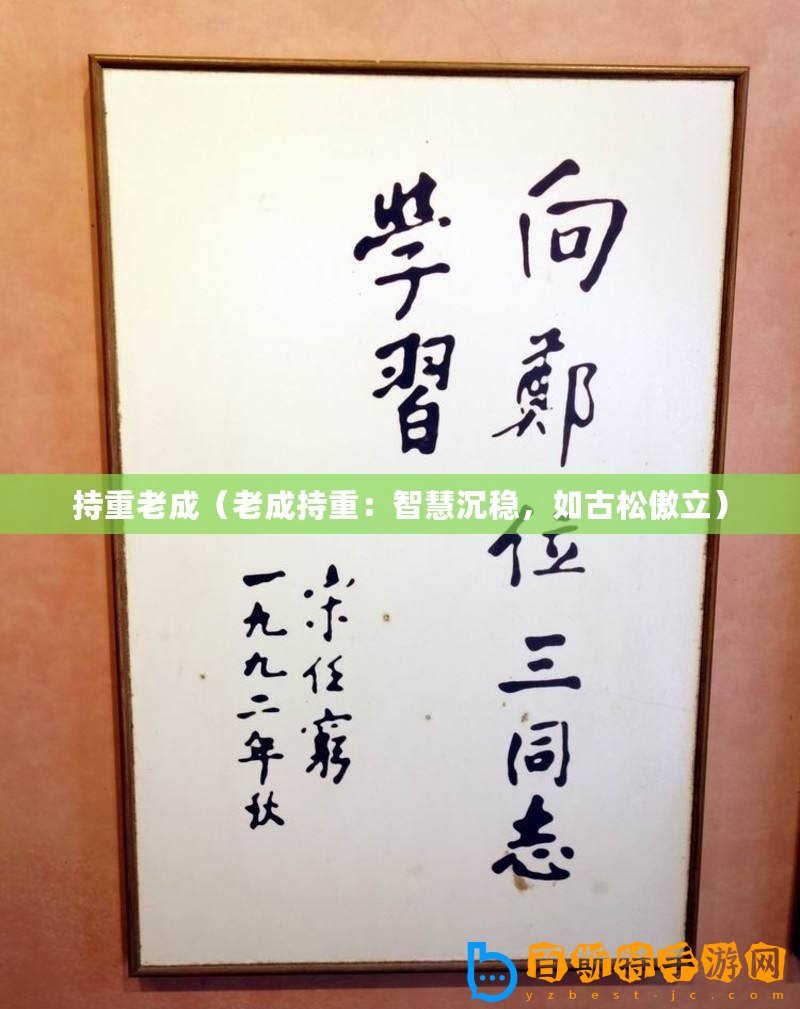 向鄭位三同志
學習
宋任窮
一九九二年秋
持重老成（老成持重：智慧沉稳，如古松傲立）
百斯特手游网
yzbest-jc.com